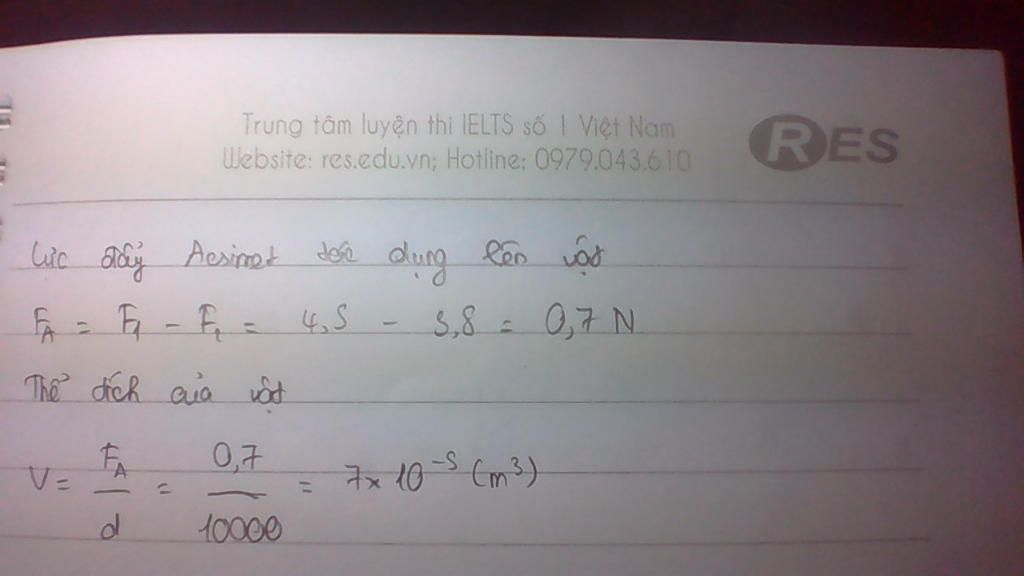 Trung tâm luyện thi IELTS số 1 Việt Nam
Website: res.edu.vn; Hotline: 0979.043.610
RES
Lực đẩy Acsimet tác dụng lên vật
F_A = F_1 - F_2 = 4,5 - 3,8 = 0,7 N
Thể tích của vật
V = F_A / d = 0,7 / 10000 = 7 x 10^-5 (m^3)